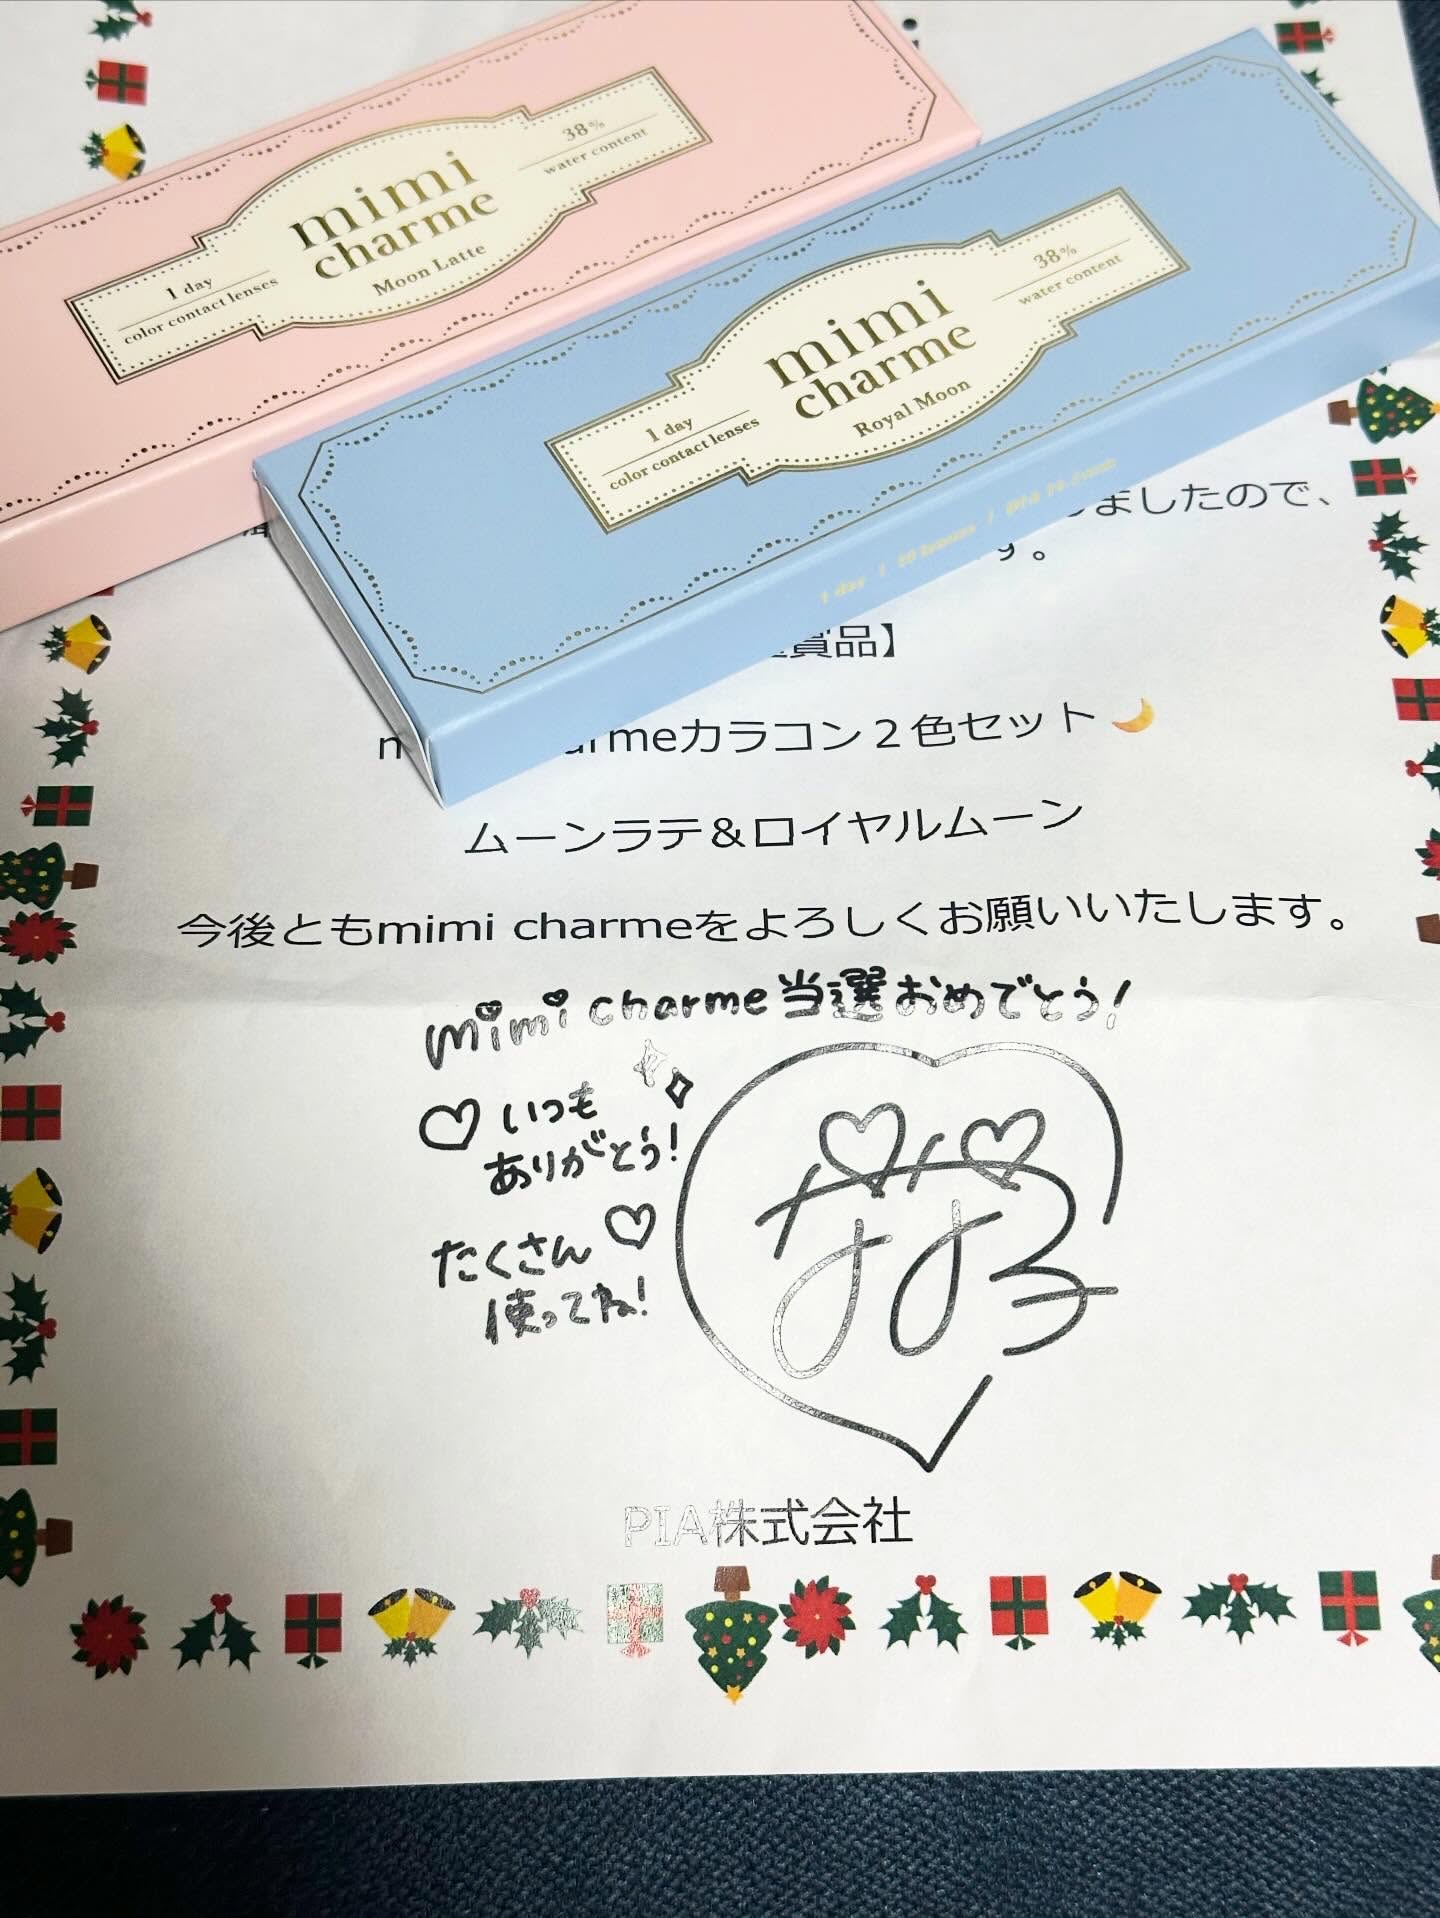 mimi
charme
Moon Latte
1 day
color contact lenses
38%
water content
mimi
charme
Royal Moon
1 day
color contact lenses
38%
water content
1 day / 10 lenses / DIA 14.5mm
しましたので、
す。
賞品】
armeカラコン2色セット🌙
ムーンラテ&ロイヤルムーン
今後ともmimi charmeをよろしくお願いいたします。
mimi charme当選おめでとう!
♡いつも
ありがとう!
たくさん♡
使ってね!
PIA株式会社